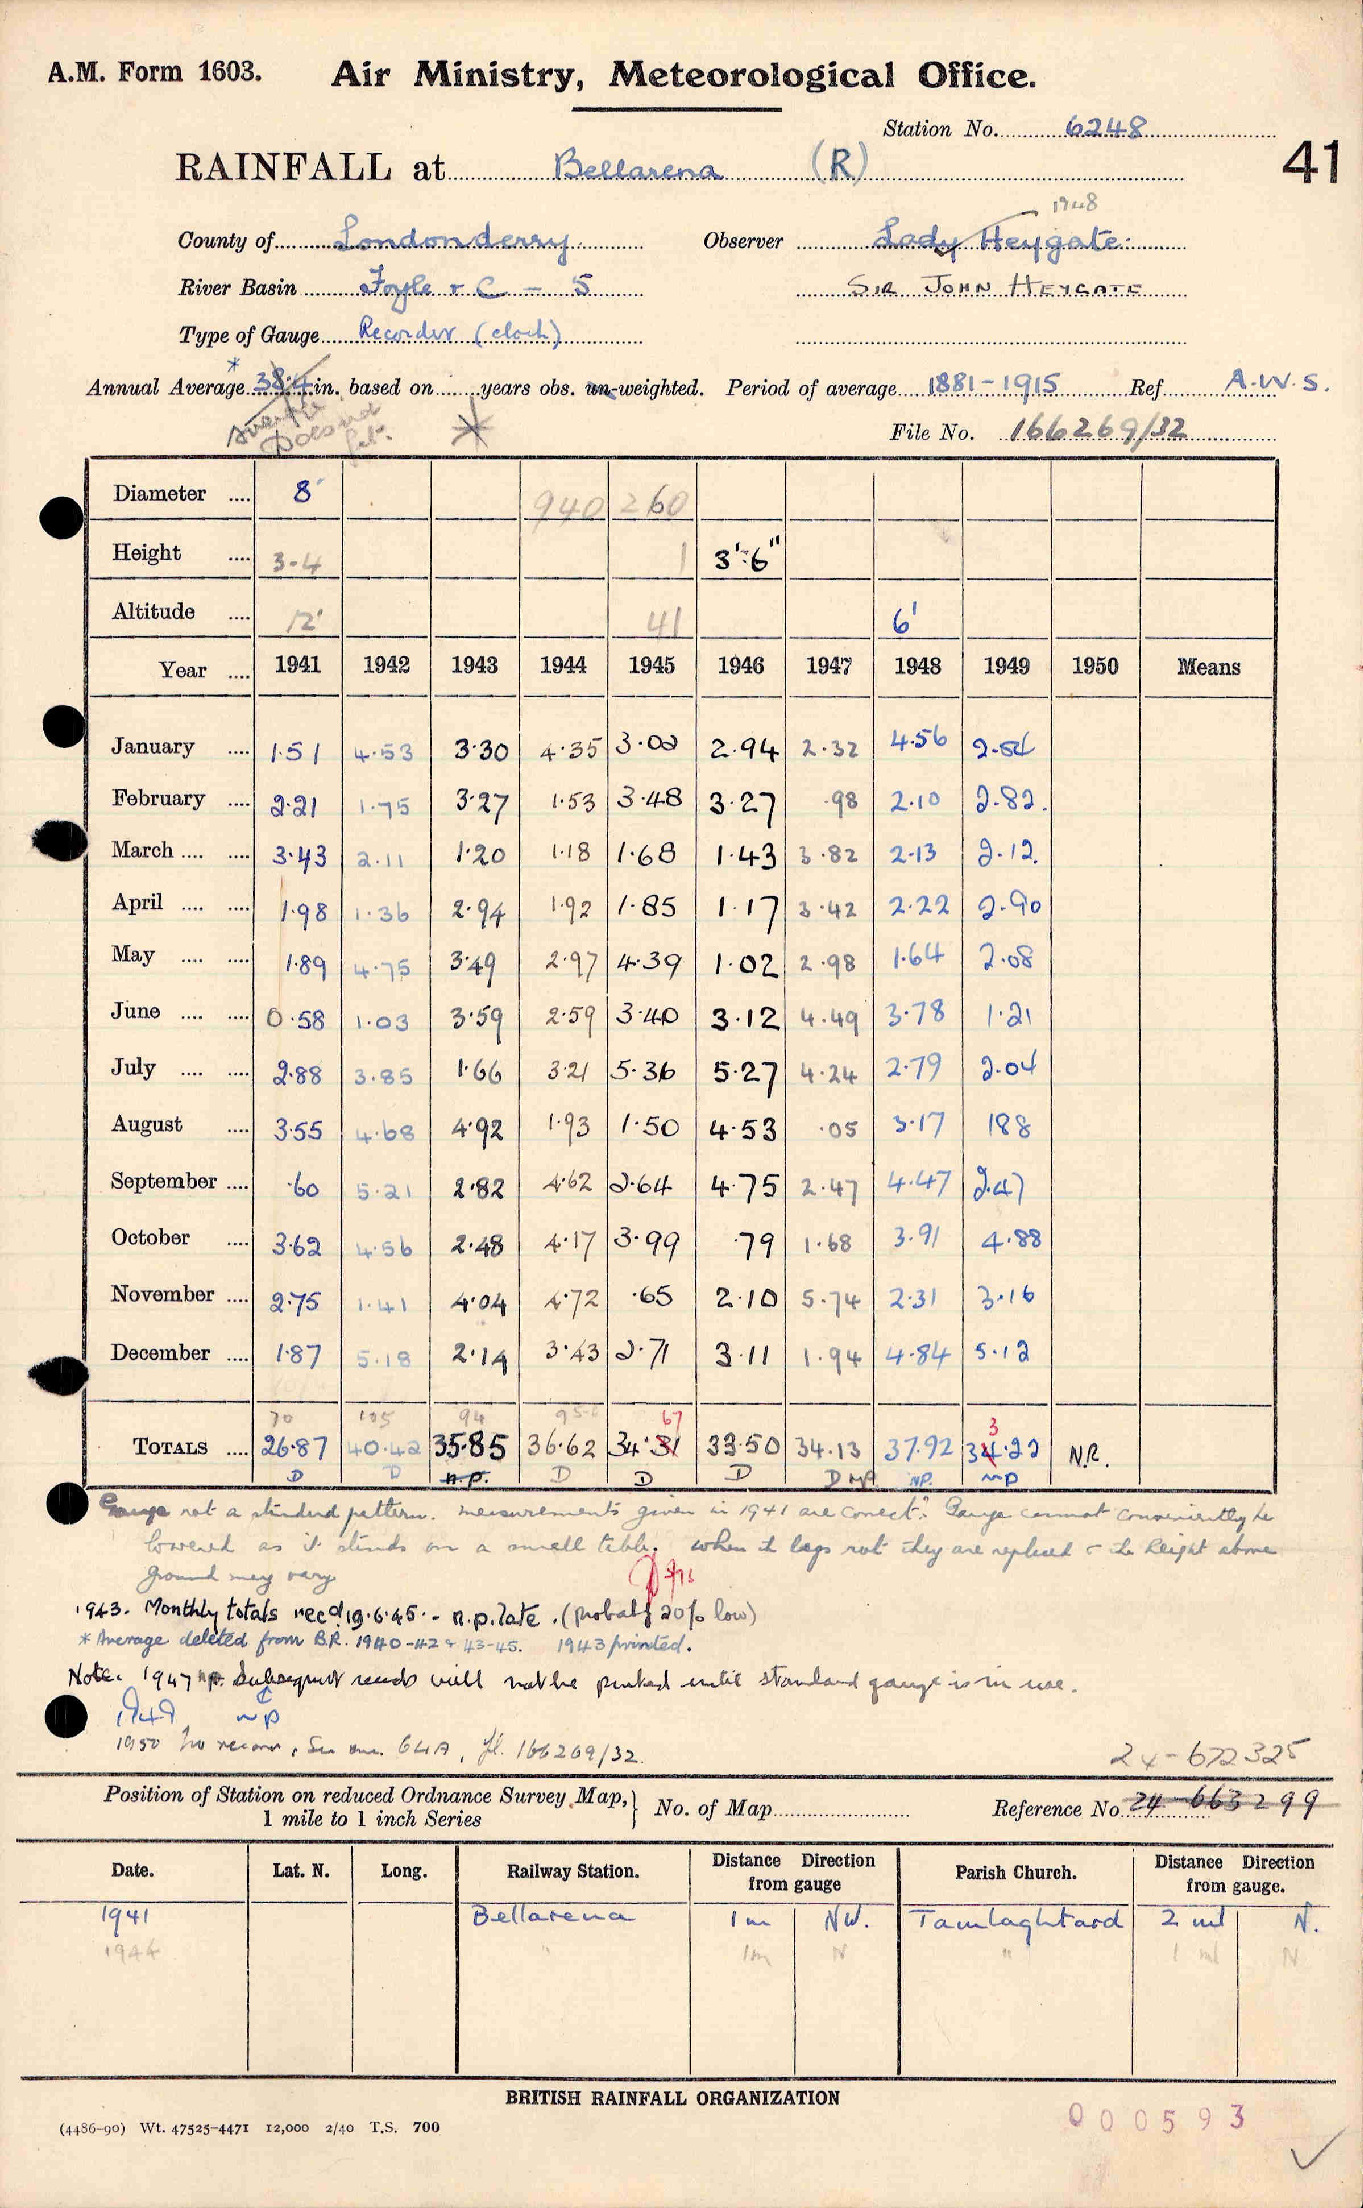 A.M. Form 1603. Air Ministry, Meteorological Office.
Station No. 6248
41
RAINFALL at Bellarena (R)
1948
County of Londonderry Observer Lady Heygate.
River Basin Foyle & C - 5 SIR JOHN HEYGATE
Type of Gauge Recorder (clock)
Annual Average * 38.4 in. based on years obs. un-weighted. Period of average 1881-1915 Ref A.W.S.
Does not
File No. 166269/32
Diameter .... 8" 940 260
Height .... 3-4 1 3'.6"
Altitude .... 12' 41 6'
Year .... 1941 1942 1943 1944 1945 1946 1947 1948 1949 1950 Means
January .... 1.51 4.53 3.30 4.35 3.02 2.94 2.32 4.56 2.54
February .... 2.21 1.75 3.27 1.53 3.48 3.27 .98 2.10 2.82.
March .... .... 3.43 2.11 1.20 1.18 1.68 1.43 3.82 2.13 2.12.
April .... .... 1.98 1.36 2.94 1.92 1.85 1.17 3.42 2.22 2.90
May .... .... 1.89 4.75 3.49 2.97 4.39 1.02 2.98 1.64 2.08
June .... .... 0.58 1.03 3.59 2.59 3.40 3.12 4.49 3.78 1.21
July .... .... 2.88 3.85 1.66 3.21 5.36 5.27 4.24 2.79 2.04
August .... 3.55 4.68 4.92 1.93 1.50 4.53 .05 3.17 188
September .... .60 5.21 2.82 4.62 2.64 4.75 2.47 4.47 2.47
October .... 3.62 4.56 2.48 4.17 3.99 .79 1.68 3.91 4.88
November .... 2.75 1.41 4.04 4.72 .65 2.10 5.74 2.31 3.16
December .... 1.87 5.18 2.14 3.43 2.71 3.11 1.94 4.84 5.12
70 105 94 95-6 67 3
TOTALS .... 26.87 40.42 35.85 36.62 34.31 33.50 34.13 37.92 34.22 N.R.
D D n.p. D D D D NP. NP. NP
Gauge not a standard pattern. measurements given in 1941 are correct? Gauge cannot conveniently be
lowered as it stands on a small table. when the legs rot they are replaced & the height above
ground may vary
1943. Monthly totals recd 19.6.45. - n.p. late. (probably 20% low)
* Average deleted from B.R. 1940-42 & 43-45. 1943 printed.
Note. 1947 n.p. Subsequent records will not be printed until standard gauge is in use.
1949 NP
1950 No record, See 64A, fl. 166269/32.
24-672325
Position of Station on reduced Ordnance Survey Map, 1 mile to 1 inch Series } No. of Map Reference No 24-663299
Date. Lat. N. Long. Railway Station. Distance Direction from gauge Parish Church. Distance Direction from gauge.
1941 Bellarena 1m NW. Tamlaghtard 2 ml N.
1944 " 1m N " 1 ml N
BRITISH RAINFALL ORGANIZATION
(4486-90) Wt. 47525-4471 12,000 2/40 T.S. 700
000593